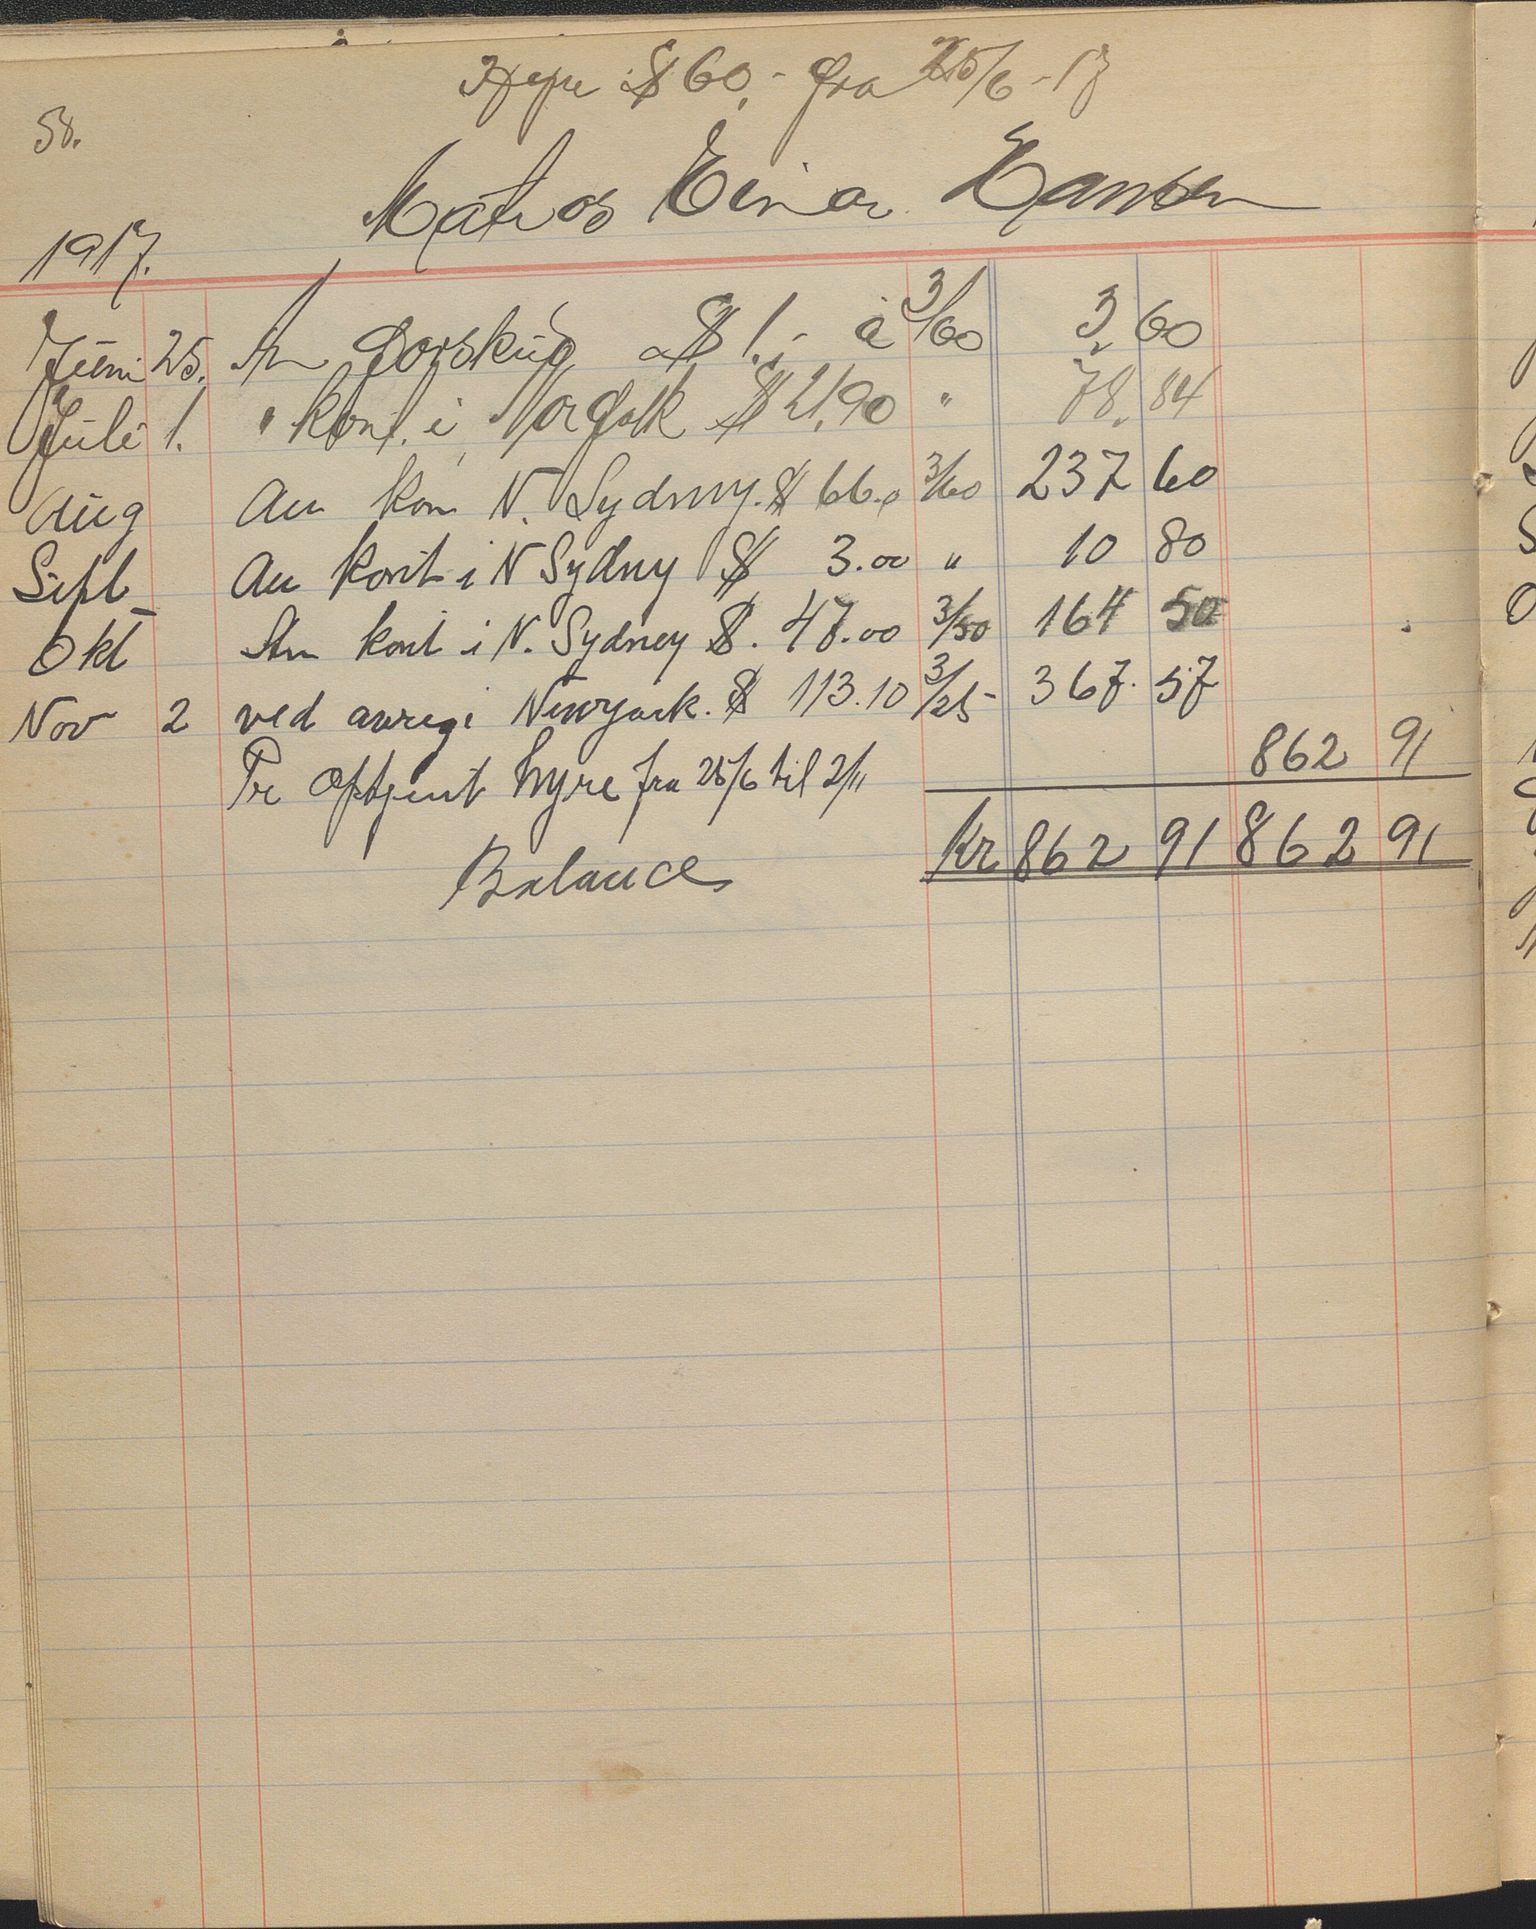 Hyre $60,- fra 25/6-17
58.
Matros Einar Hansen
1917.
Juni 25. An Forskud $ 1.- à 3/60 3 60
Juli 1. " kont. i Norfolk $ 21,90 " 78. 84
Aug An kon N. Sydney. $ 66.0 3/60 237 60
Sept An kont i N Sydny $ 3.00 " 10 80
Okt An kont i N. Sydney $. 47.00 3/50 164 50
Nov 2 ved avregn Newyork. $ 113.10 3/25 367. 57
Pr optjent hyre fra 25/6 til 2/11 862 91
Balance Kr 862 91 862 91